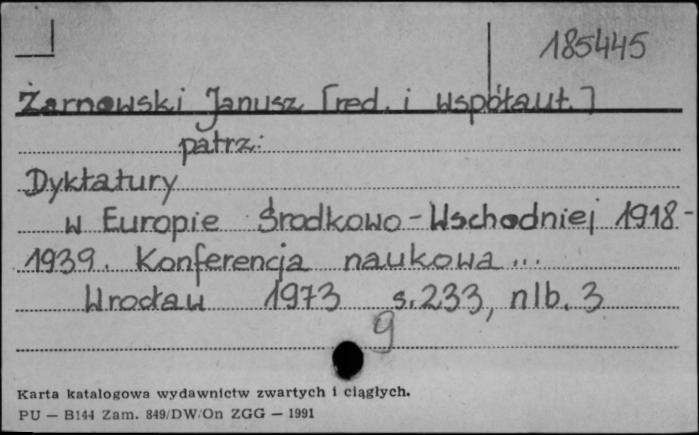 185445
Żarnowski Janusz [red. i współaut.]
patrz:
Dyktatury
w Europie Środkowo-Wschodniej 1918-
1939. Konferencja naukowa...
Wrocław 1973 s. 233, nlb. 3
g
Karta katalogowa wydawnictw zwartych i ciągłych.
PU — B144 Zam. 849/DW/On ZGG — 1991